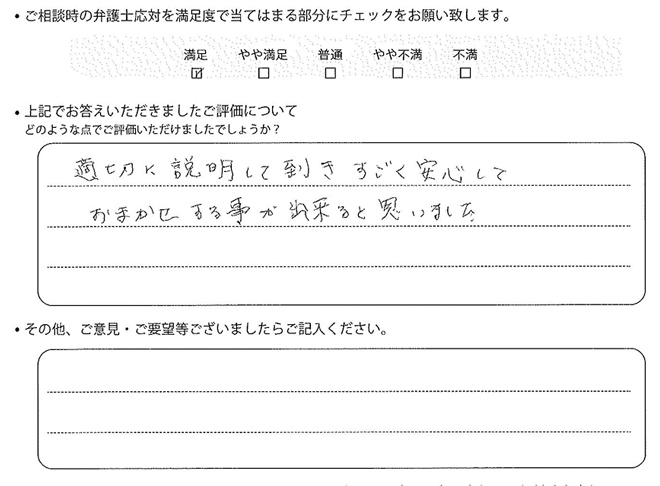 • ご相談時の弁護士応対を満足度で当てはまる部分にチェックをお願い致します。
満足 やや満足 普通 やや不満 不満
☑ ☐ ☐ ☐ ☐
• 上記でお答えいただきましたご評価について
どのような点でご評価いただけましたでしょうか？
適切に説明して到きすごく安心して
おまかせする事が出来ると思いました
• その他、ご意見・ご要望等ございましたらご記入ください。